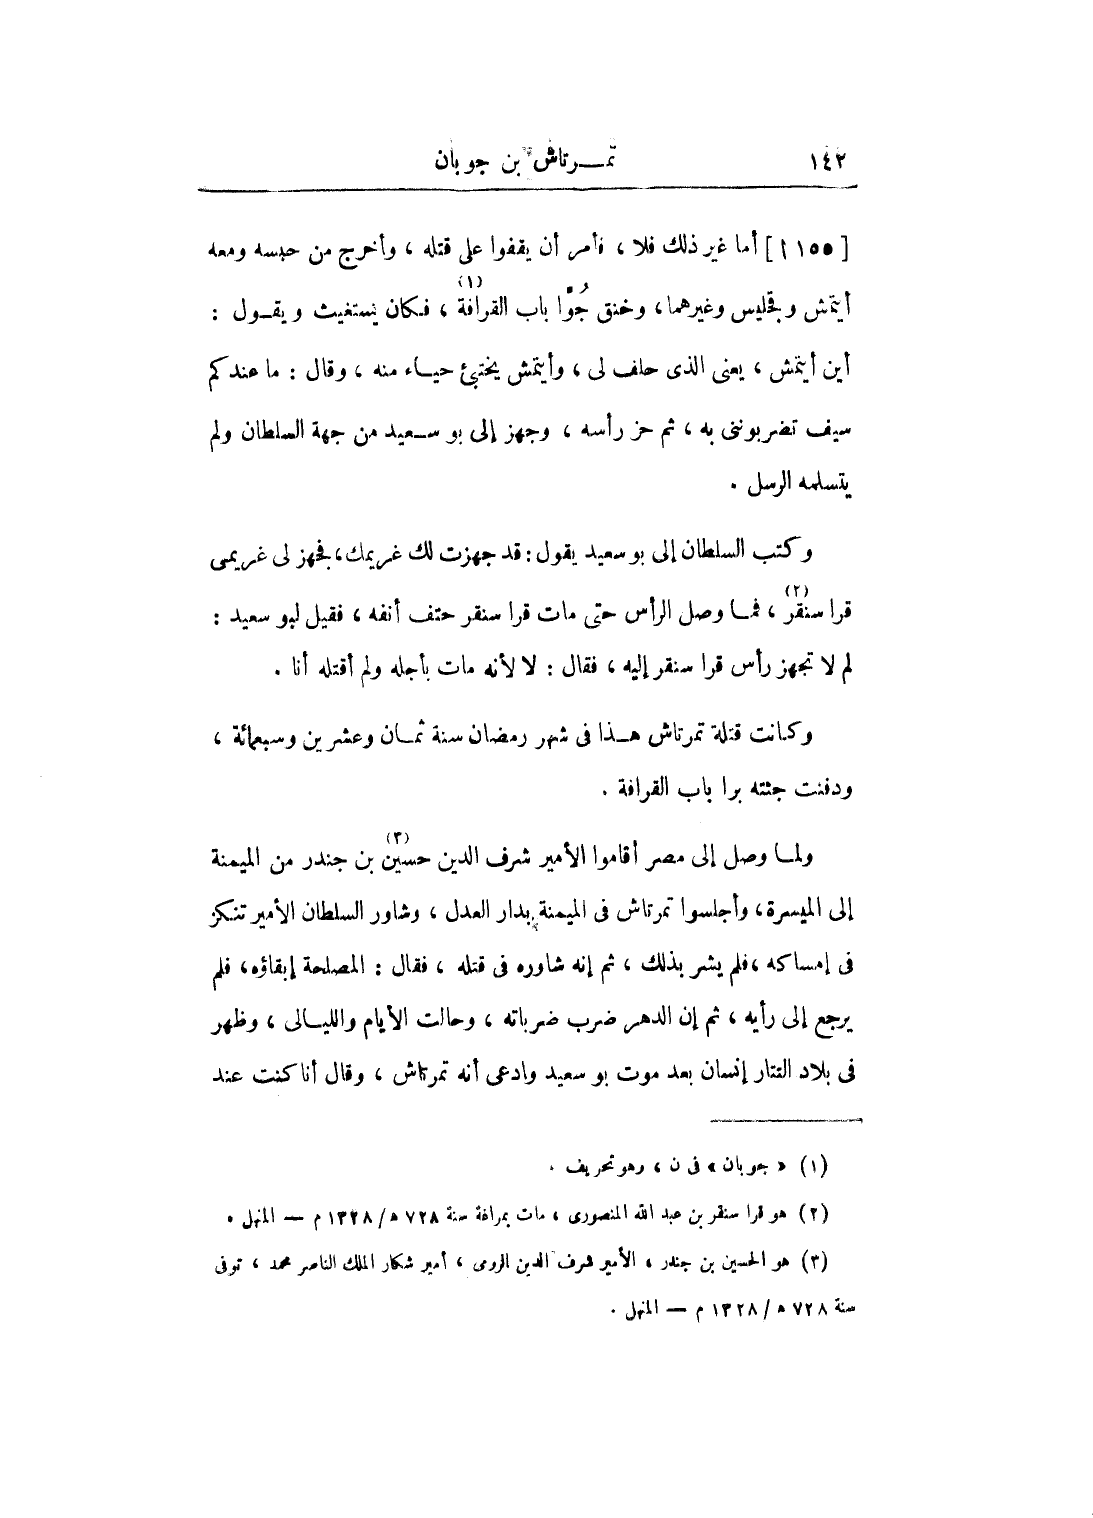 ١٤٢ تمـرتاش بن جوبان
[١٥٥ أ] أما غير ذلك فلا ، فأمر أن يقفوا على قتله ، وأخرج من حبسه ومعه
أيتمش وقجليس وغيرهما ، وخنق جُوّا باب القرافة (١) ، فكان يستغيث ويقـول :
أين أيتمش ، يعنى الذى حلف لى ، وأيتمش يختبئ حيـاء منه ، وقال : ما عندكم
سيف تضربوننى به ، ثم حز رأسه ، وجهز إلى بو سـعيد من جهة السلطان ولم
يتسلمه الرسل .
وكتب السلطان إلى بو سعيد يقول : قد جهزت لك غريمك ، فجهز لى غريمى
قرا سنقر (٢) ، فمـا وصل الرأس حتى مات قرا سنقر حتف أنفه ، فقيل لبو سعيد :
لم لا تجهز رأس قرا سنقر إليه ، فقال : لا لأنه مات بأجله ولم أقتله أنا .
وكانت قتلة تمرتاش هـذا فى شهر رمضان سنة ثمـان وعشرين وسبعمائة ،
ودفنت جثته برا باب القرافة .
ولمـا وصل إلى مصر أقاموا الأمير شرف الدين حسين (٣) بن جندر من الميمنة
إلى الميسرة ، وأجلسوا تمرتاش فى الميمنة بدار العدل ، وشاور السلطان الأمير تنكز
فى إمساكه ، فلم يشر بذلك ، ثم إنه شاوره فى قتله ، فقال : المصلحة إبقاؤه ، فلم
يرجع إلى رأيه ، ثم إن الدهر ضرب ضرباته ، وحالت الأيام والليـالى ، وظهر
فى بلاد التتار إنسان بعد موت بو سعيد وادعى أنه تمرتاش ، وقال أنا كنت عند
(١) « جوبان » فى ن ، وهو تحريف .
(٢) هو قرا سنقر بن عبد الله المنصورى ، مات بمراغة سنة ٧٢٨ هـ / ١٣٢٨ م — المنهل .
(٣) هو الحسين بن جندر ، الأمير شرف الدين الرومى ، أمير شكار الملك الناصر محمد ، توفى
سنة ٧٢٨ هـ / ١٣٢٨ م — المنهل .